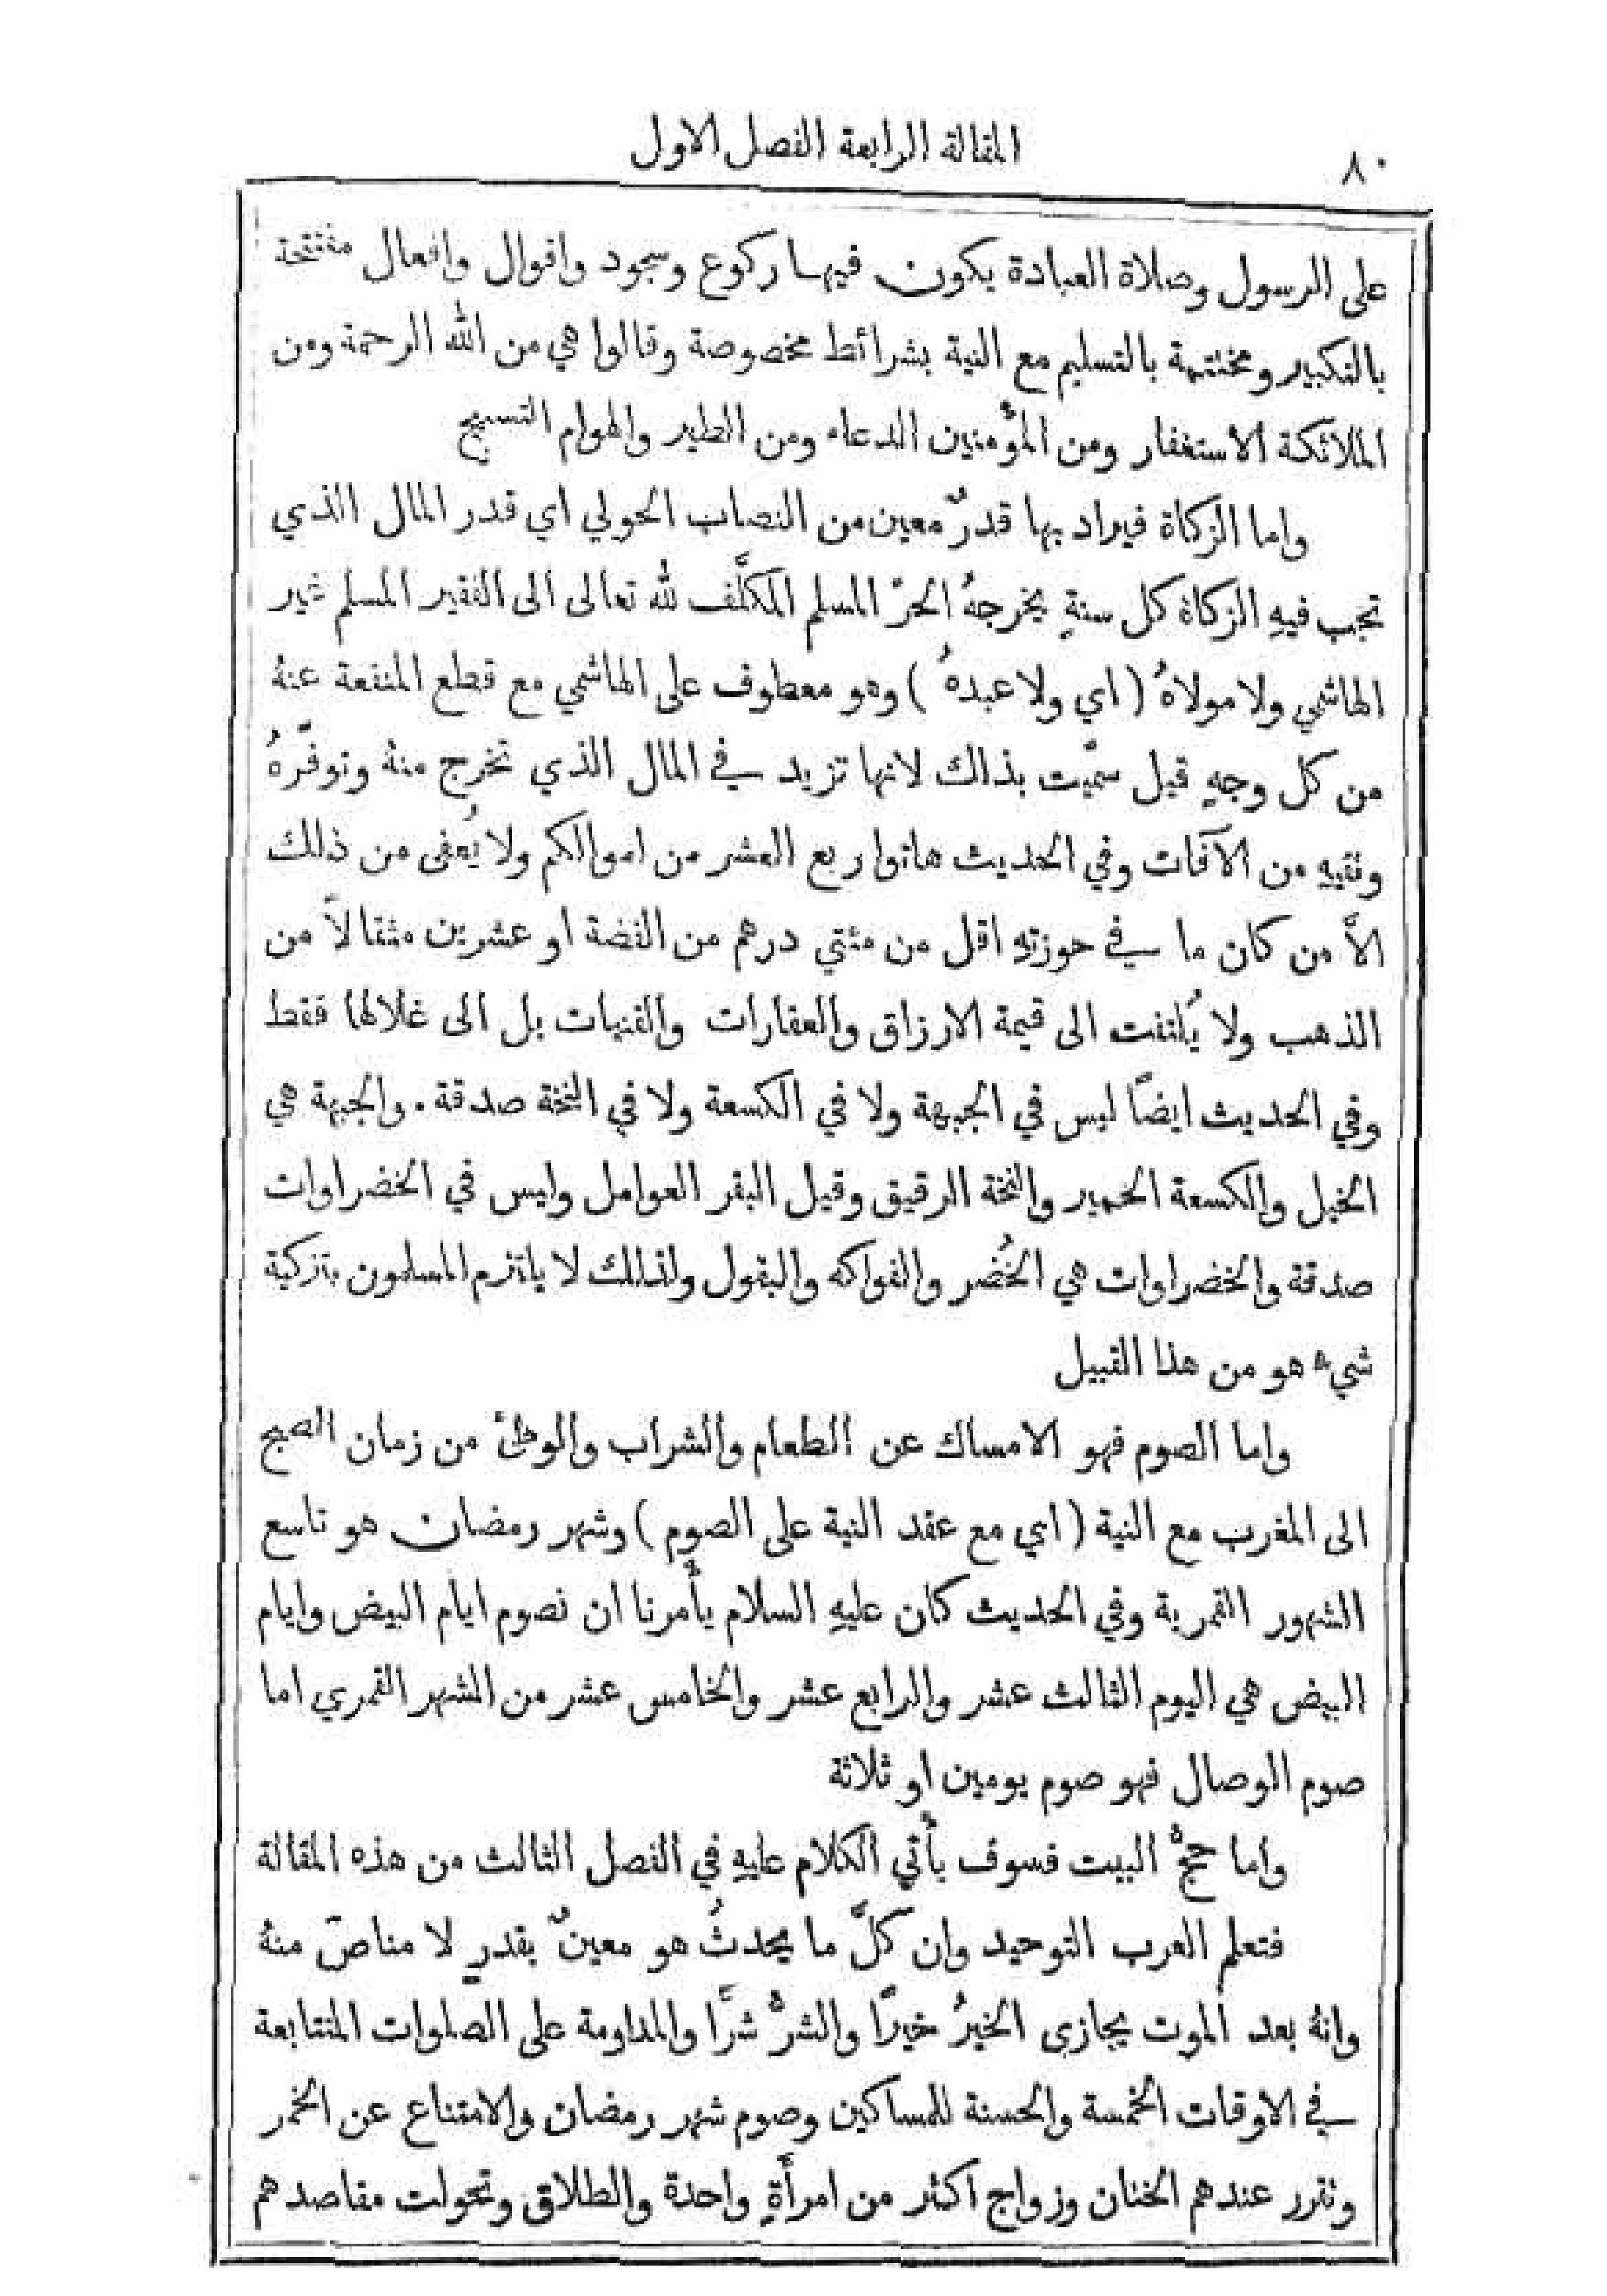 ٨٠
المقالة الرابعة الفصل الاول
على الرسول وصلاة العبادة يكون فيها ركوع وسجود واقوال وافعال مفتتحة
بالتكبير ومختتمة بالتسليم مع النية بشرائط مخصوصة وقالوا هي من الله الرحمة ومن
الملائكة الاستغفار ومن المؤمنين الدعاء ومن الطير والهوام التسبيح
واما الزكاة فيراد بها قدرٌ معين من النصاب الحولي اي قدر المال الذي
تجب فيهِ الزكاة كل سنةٍ يخرجهُ الحرّ المسلم المكلَّف لله تعالى الى الفقير المسلم غير
الهاشمي ولا مولاهُ (اي ولا عبدهُ) وهو معطوف على الهاشمي مع قطع المنفعة عنهُ
من كل وجهٍ قيل سمّيت بذلك لانها تزيد في المال الذي تخرج منهُ وتوفّرهُ
وتقيهِ من الآفات وفي الحديث هاتوا ربع العشر من اموالكم ولا يُعفى من ذلك
الاَّ من كان ما في حوزتهِ اقل من مئتي درهم من الفضة او عشرين مثقالاً من
الذهب ولا يُلتفت الى قيمة الارزاق والعقارات والقنيات بل الى غلالها فقط
وفي الحديث ايضًا ليس في الجبهة ولا في الكسعة ولا في النخة صدقة. والجبهة هي
الخيل والكسعة الحمير والنخة الرقيق وقيل البقر العوامل وليس في الخضراوات
صدقة والخضراوات هي الخُضر والفواكه والبقول ولذلك لا يلتزم المسلمون بتزكية
شيء هو من هذا القبيل
واما الصوم فهو الامساك عن الطعام والشراب والوطئ من زمان الصبح
الى المغرب مع النية (اي مع عقد النية على الصوم) وشهر رمضان هو تاسع
الشهور القمرية وفي الحديث كان عليهِ السلام يأمرنا ان نصوم ايام البيض وايام
البيض هي اليوم الثالث عشر والرابع عشر والخامس عشر من الشهر القمري اما
صوم الوصال فهو صوم يومين او ثلاثة
واما حجّ البيت فسوف يأتي الكلام عليهِ في الفصل الثالث من هذه المقالة
فتعلم العرب التوحيد وان كلَّ ما يحدثُ هو معينٌ بقدرٍ لا مناصَ منهُ
وانهُ بعد الموت يجازى الخيرُ خيرًا والشرُّ شرًّا والمداومة على الصلوات المتتابعة
في الاوقات الخمسة والحسنة للمساكين وصوم شهر رمضان والامتناع عن الخمر
وتقرر عندهم الختان وزواج اكثر من امرأةٍ واحدة والطلاق وتحولت مقاصدهم